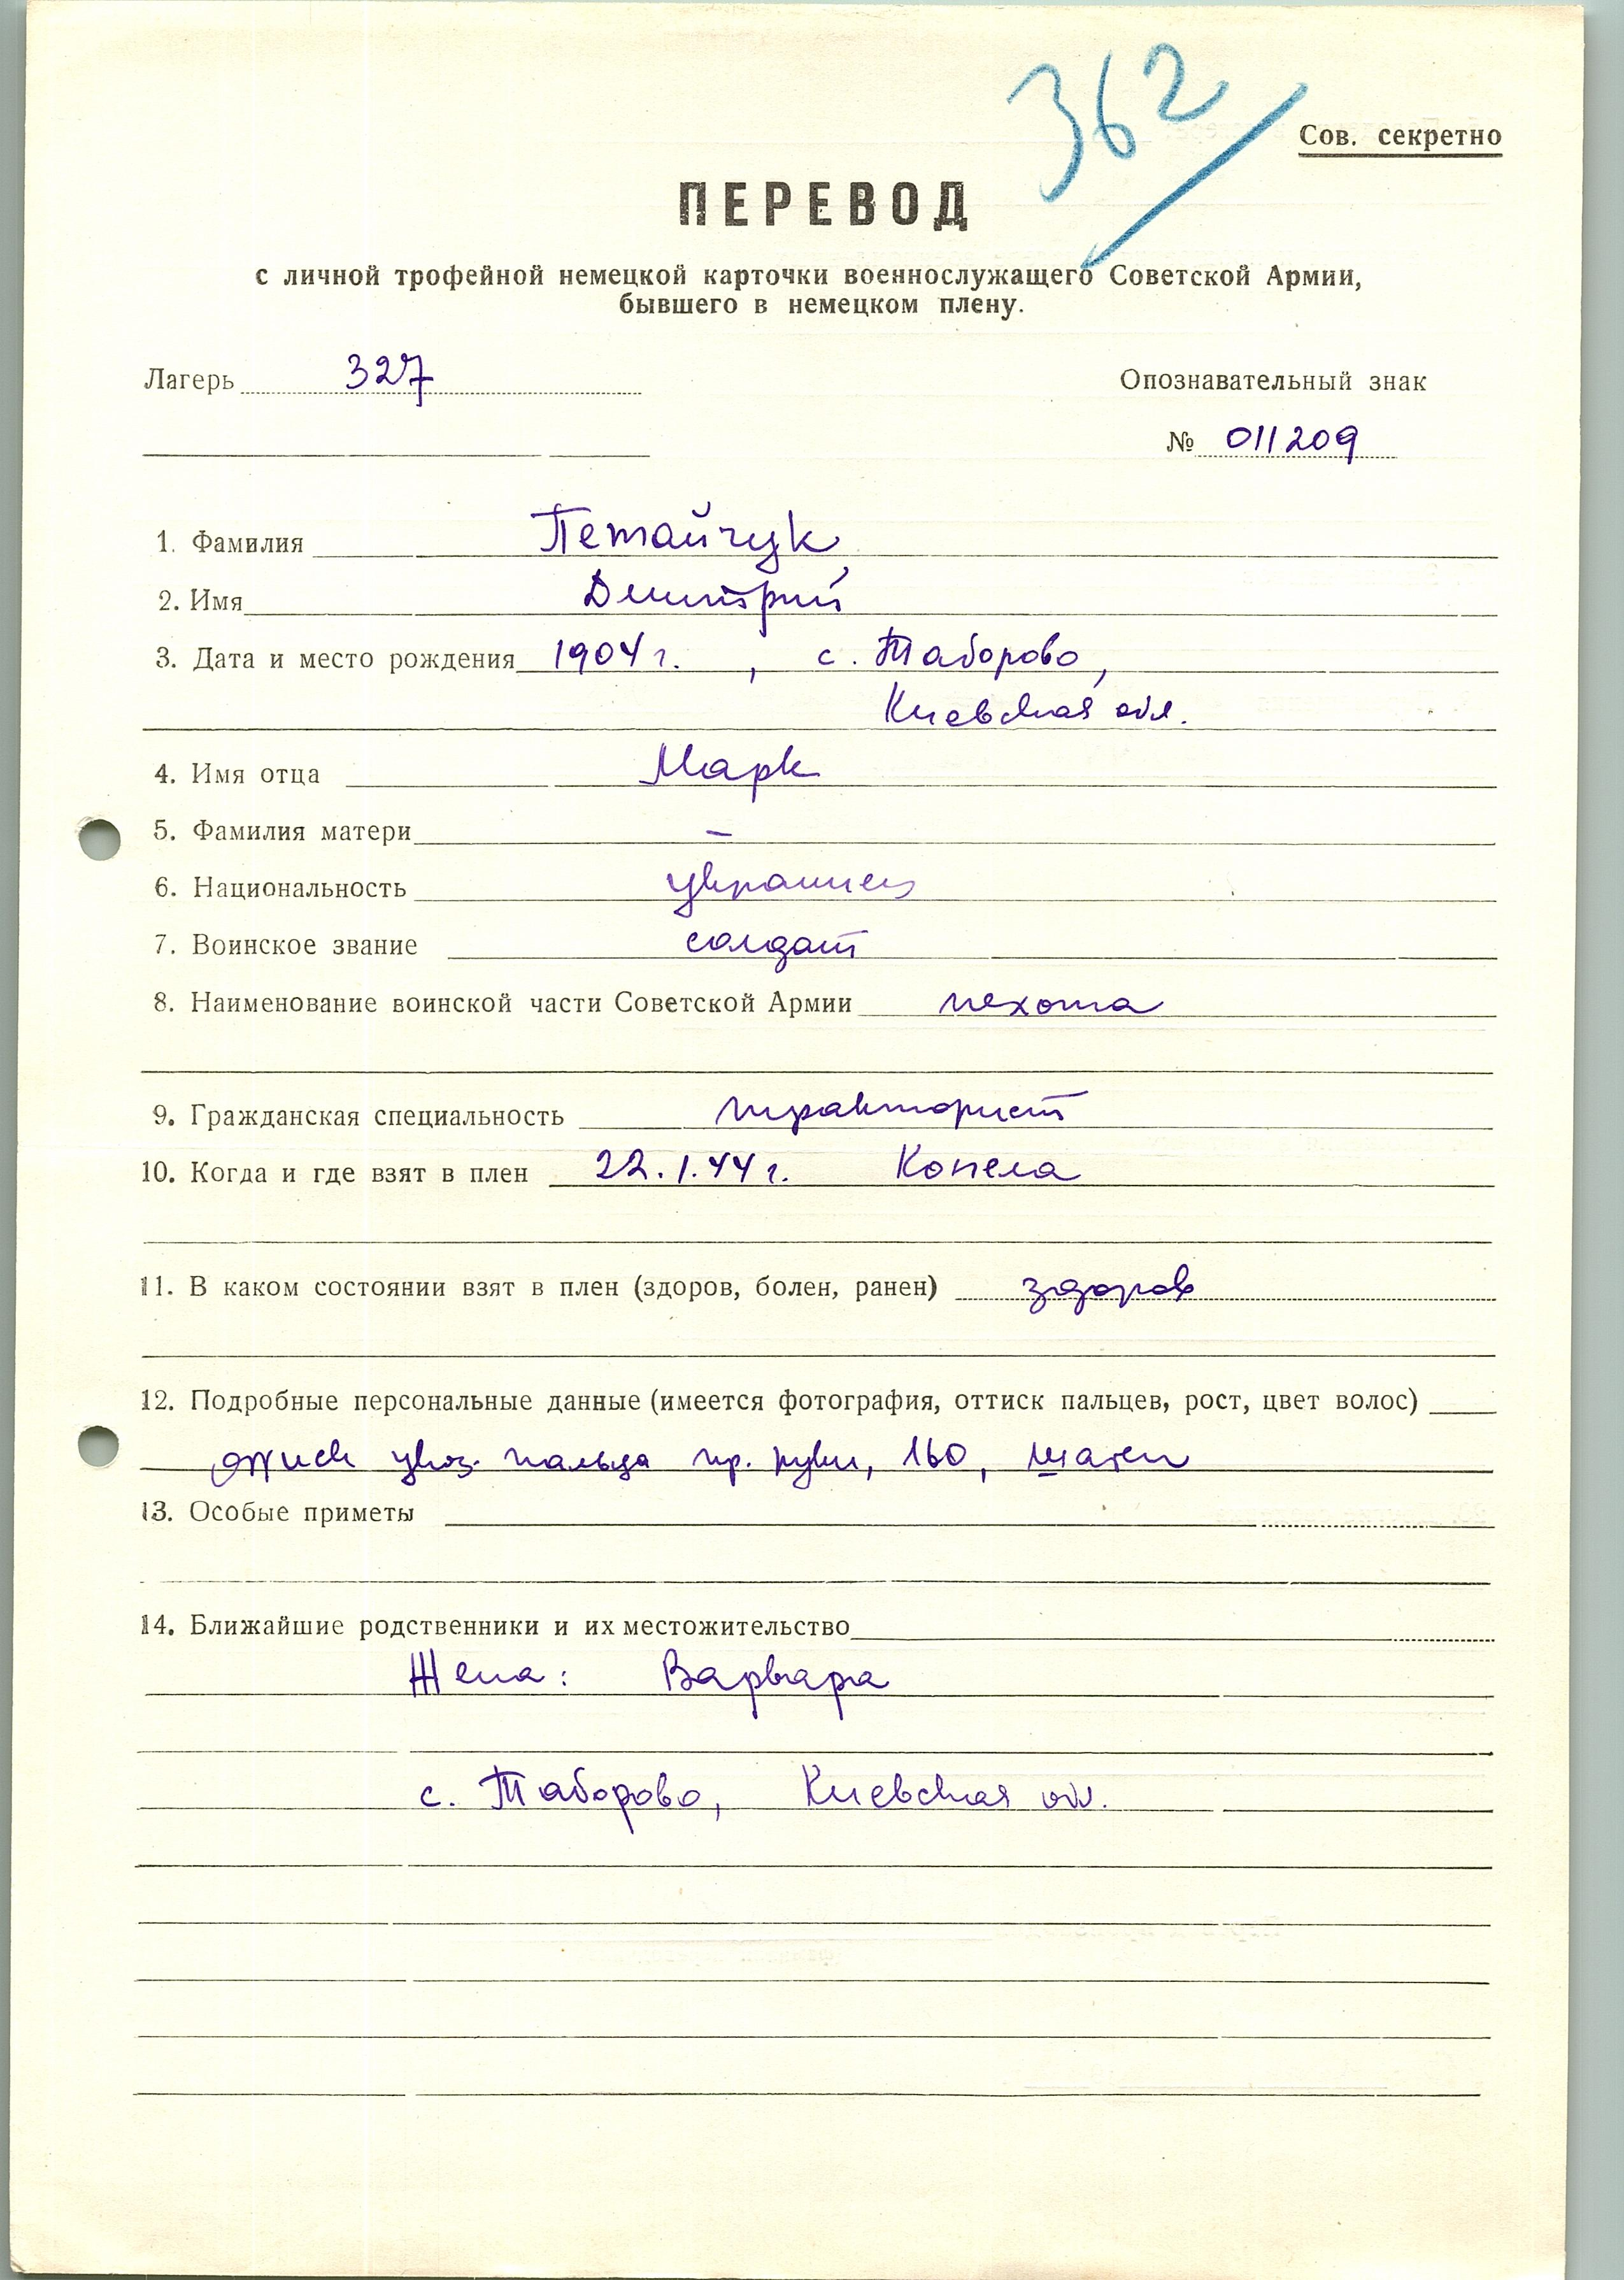 362
Сов. секретно
ПЕРЕВОД
с личной трофейной немецкой карточки военнослужащего Советской Армии,
бывшего в немецком плену.
Лагерь 327
Опознавательный знак
№ 011209
1. Фамилия Петайчук
2. Имя Дмитрий
3. Дата и место рождения 1904 г. , с. Таборово,
Киевская обл.
4. Имя отца Марк
5. Фамилия матери –
6. Национальность украинец
7. Воинское звание солдат
8. Наименование воинской части Советской Армии пехота
9. Гражданская специальность тракторист
10. Когда и где взят в плен 22.1.44 г. Копела
11. В каком состоянии взят в плен (здоров, болен, ранен) здоров
12. Подробные персональные данные (имеется фотография, оттиск пальцев, рост, цвет волос)
указ. пальца пр. руки, 160, шатен
13. Особые приметы
14. Ближайшие родственники и их местожительство
Жена: Варвара
с. Таборово, Киевская обл.